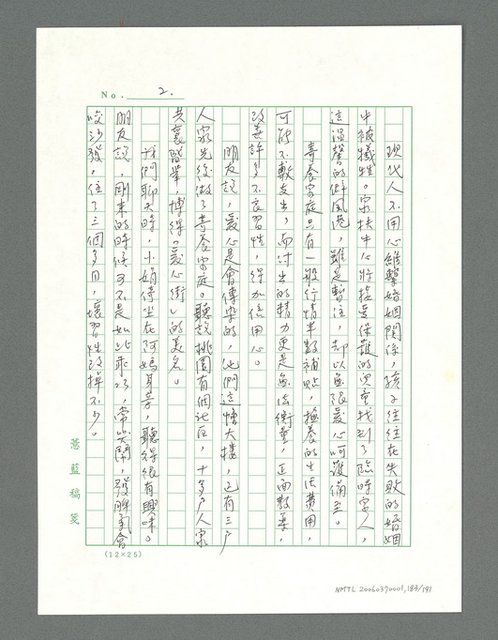 No. 2.
現代人不用心維繫婚姻關係，孩子往往在失敗的婚姻
中被犧牲。家扶中心將接受保護的兒童找到了臨時家人，
這溫馨的避風港，雖是暫住，卻以無限愛心呵護備至。
寄養家庭只有一般行情半數補貼，撫養的生活費用，
可能不敷支出，而付出的精力更是無法衡量，正面教養，
改善許多不良習性，得加倍用心。
朋友說，愛心是會傳染的，他們這幢大樓，已有三戶
人家先後做了寄養家庭。聽說桃園有個社區，十多戶人家
共襄盛舉，博得「愛心街」的美名。
我們聊天時，小娟倚坐在阿媽身旁，聽得很有興味。
朋友說，剛來的時候可不是如此乖巧，常哭鬧，發脾氣會
咬沙發，住了三個多月，壞習性改掉不少。
落藍稿箋
(12×25)
NMTL 20060370001,184/191